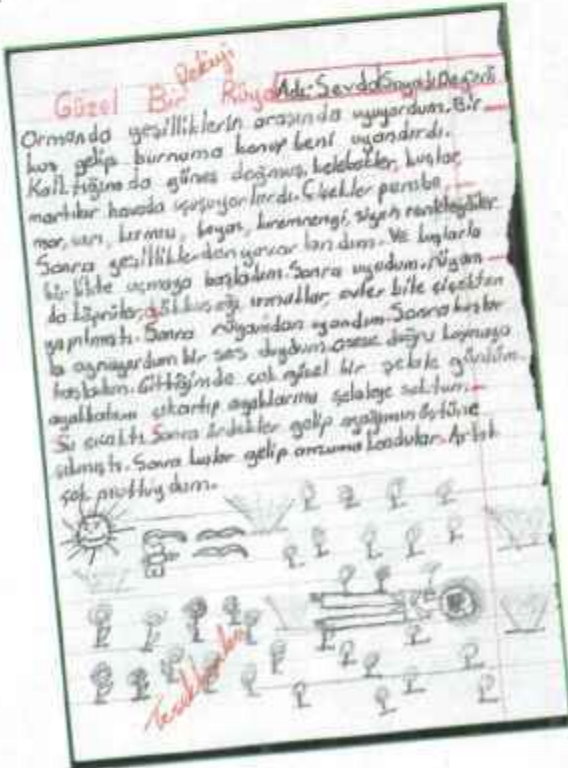 Pekiyi
Güzel Bir Rüya Adı: Sevda Soyadı: Değerli
Ormanda yeşilliklerin arasında uyuyordum. Bir
kuş gelip burnuma konup beni uyandırdı.
Kalktığımda güneş doğmuş, kelebekler, kuşlar,
martılar havada uçuşuyorlardı. Çiçekler pembe,
mor, sarı, kırmızı, beyaz, kremrengi, siyah renkteydiler.
Sonra yeşilliklerden yuvarlandım. Ve kuşlarla
birlikte uçmaya başladım. Sonra uyudum. rüyam
da köprüler, gökkuşağı ırmaklar, evler bile çiçekten
yapılmıştı. Sonra rüyamdan uyandım. Sonra kuşlar
la oynuyordum bir ses duydum. osese doğru koşmaya
başladım. Gittiğimde çok güzel bir şelale gördüm.
ayakkabımı çıkartıp ayaklarımı şelaleye soktum.
Su sıcaktı. Sonra ördekler gelip ayağımın üstüne
çıkmıştı. Sonra kuşlar gelip omzuma kondular. Artık
çok mutluydum.
Tebrikler